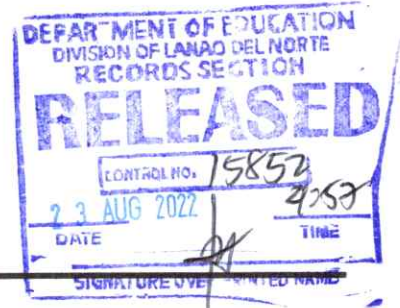 DEPARTMENT OF EDUCATION
DIVISION OF LANAO DEL NORTE
RECORDS SECTION
RELEASED
CONTROL NO. 15852
23 AUG 2022
DATE TIME
SIGNATURE OVER PRINTED NAME